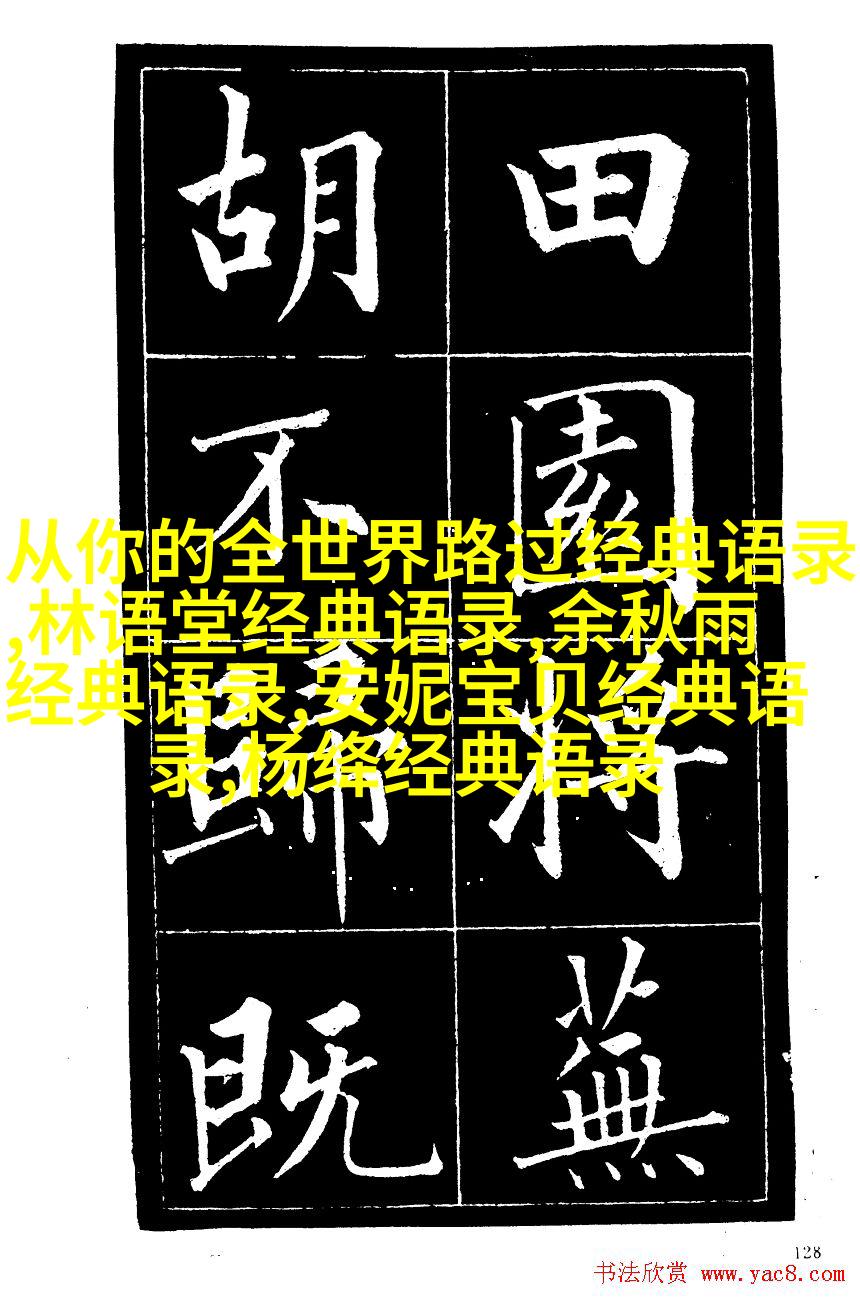 田園將蕪
胡不歸既
从你的全世界路过经典语录
,林语堂经典语录,余秋雨
经典语录,安妮宝贝经典语
录,杨绛经典语录
128
书法欣赏 www.yac8.com